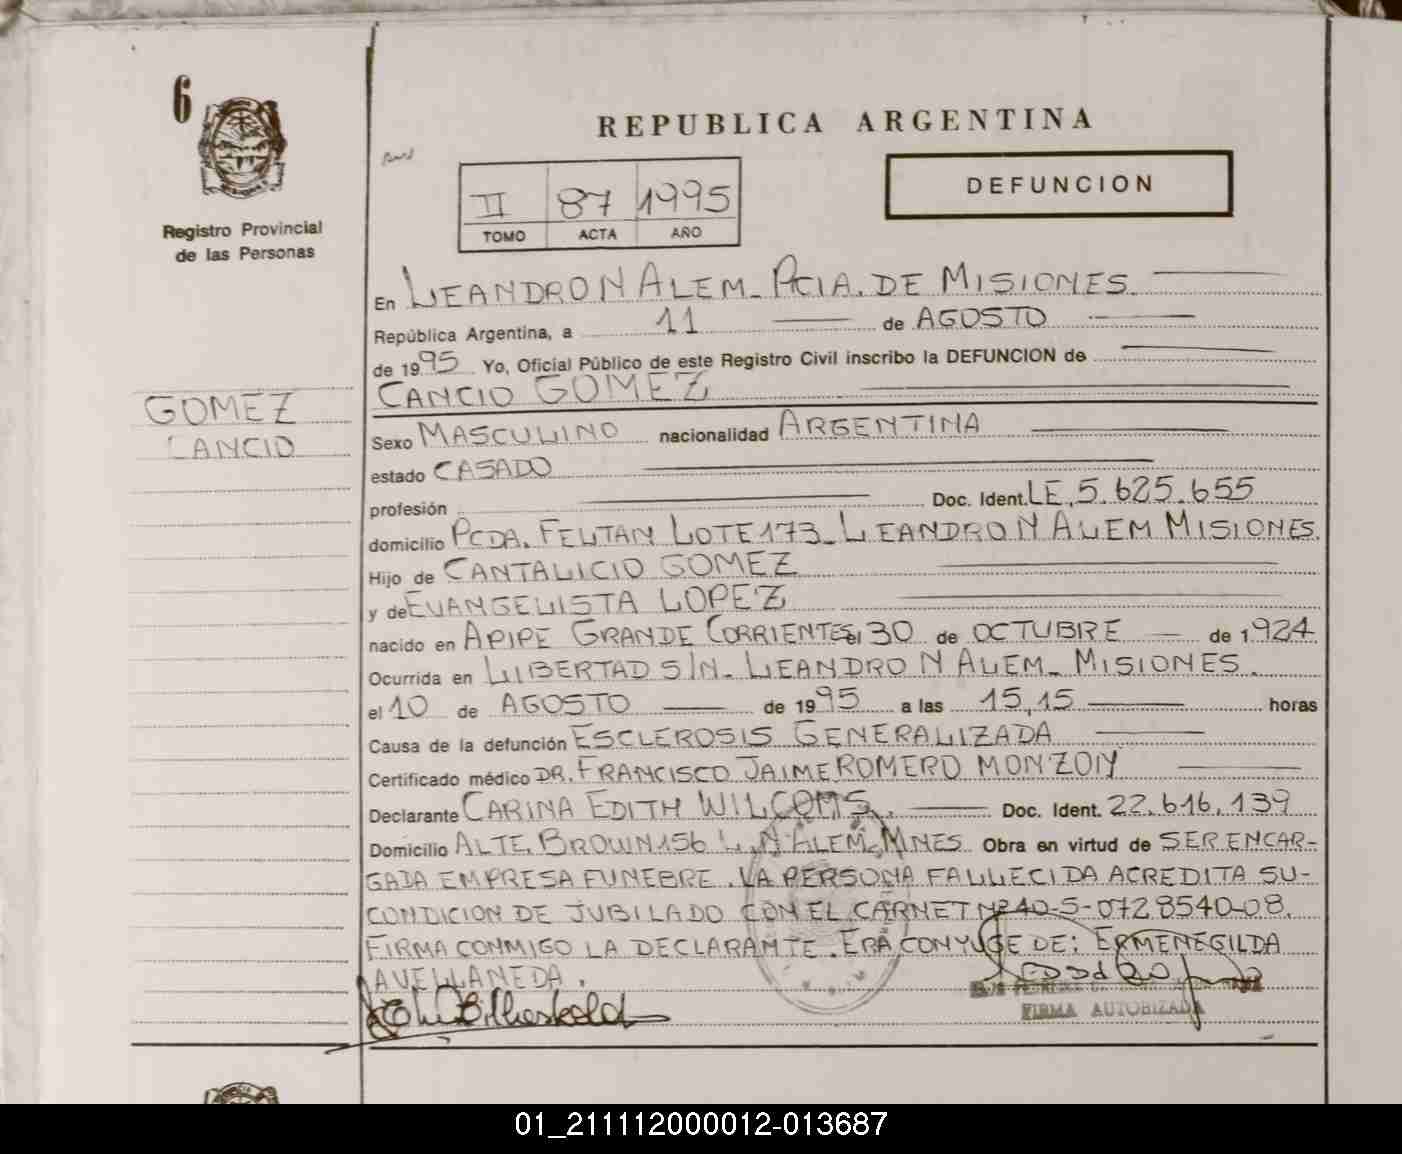 6
Registro Provincial
de las Personas
REPUBLICA ARGENTINA
II 87 1995
TOMO ACTA AÑO
DEFUNCION
En LEANDRO N ALEM_ PCIA. DE MISIONES.
República Argentina, a 11 de AGOSTO
de 1995 Yo, Oficial Público de este Registro Civil inscribo la DEFUNCION de
CANCIO GOMEZ
GOMEZ
CANCIO
Sexo MASCULINO nacionalidad ARGENTINA
estado CASADO
profesión Doc. Ident. LE. 5.625.655
domicilio PCDA. FELTAN LOTE 173_ LEANDRO N ALEM MISIONES.
Hijo de CANTALICIO GOMEZ
y de EVANGELISTA LOPEZ
nacido en APIPE GRANDE CORRIENTES el 30 de OCTUBRE de 1.924
Ocurrida en LIBERTAD S/N_ LEANDRO N ALEM_ MISIONES.
el 10 de AGOSTO de 1995 a las 15,15 horas
Causa de la defunción ESCLEROSIS GENERALIZADA
Certificado médico DR. FRANCISCO JAIME ROMERO MONZON
Declarante CARINA EDITH WILCOMS. Doc. Ident. 22.616.139
Domicilio ALTE. BROWN 156 L.N ALEM_ MNES. Obra en virtud de SER ENCAR-
GADA EMPRESA FUNEBRE. LA PERSONA FALLECIDA ACREDITA SU-
CONDICION DE JUBILADO CON EL CARNET Nº 40-5-0728540-08.
FIRMA CONMIGO LA DECLARANTE. ERA CONYUGE DE: ERMENEGILDA
AVELLANEDA.
FIRMA AUTORIZADA
01_211112000012-013687